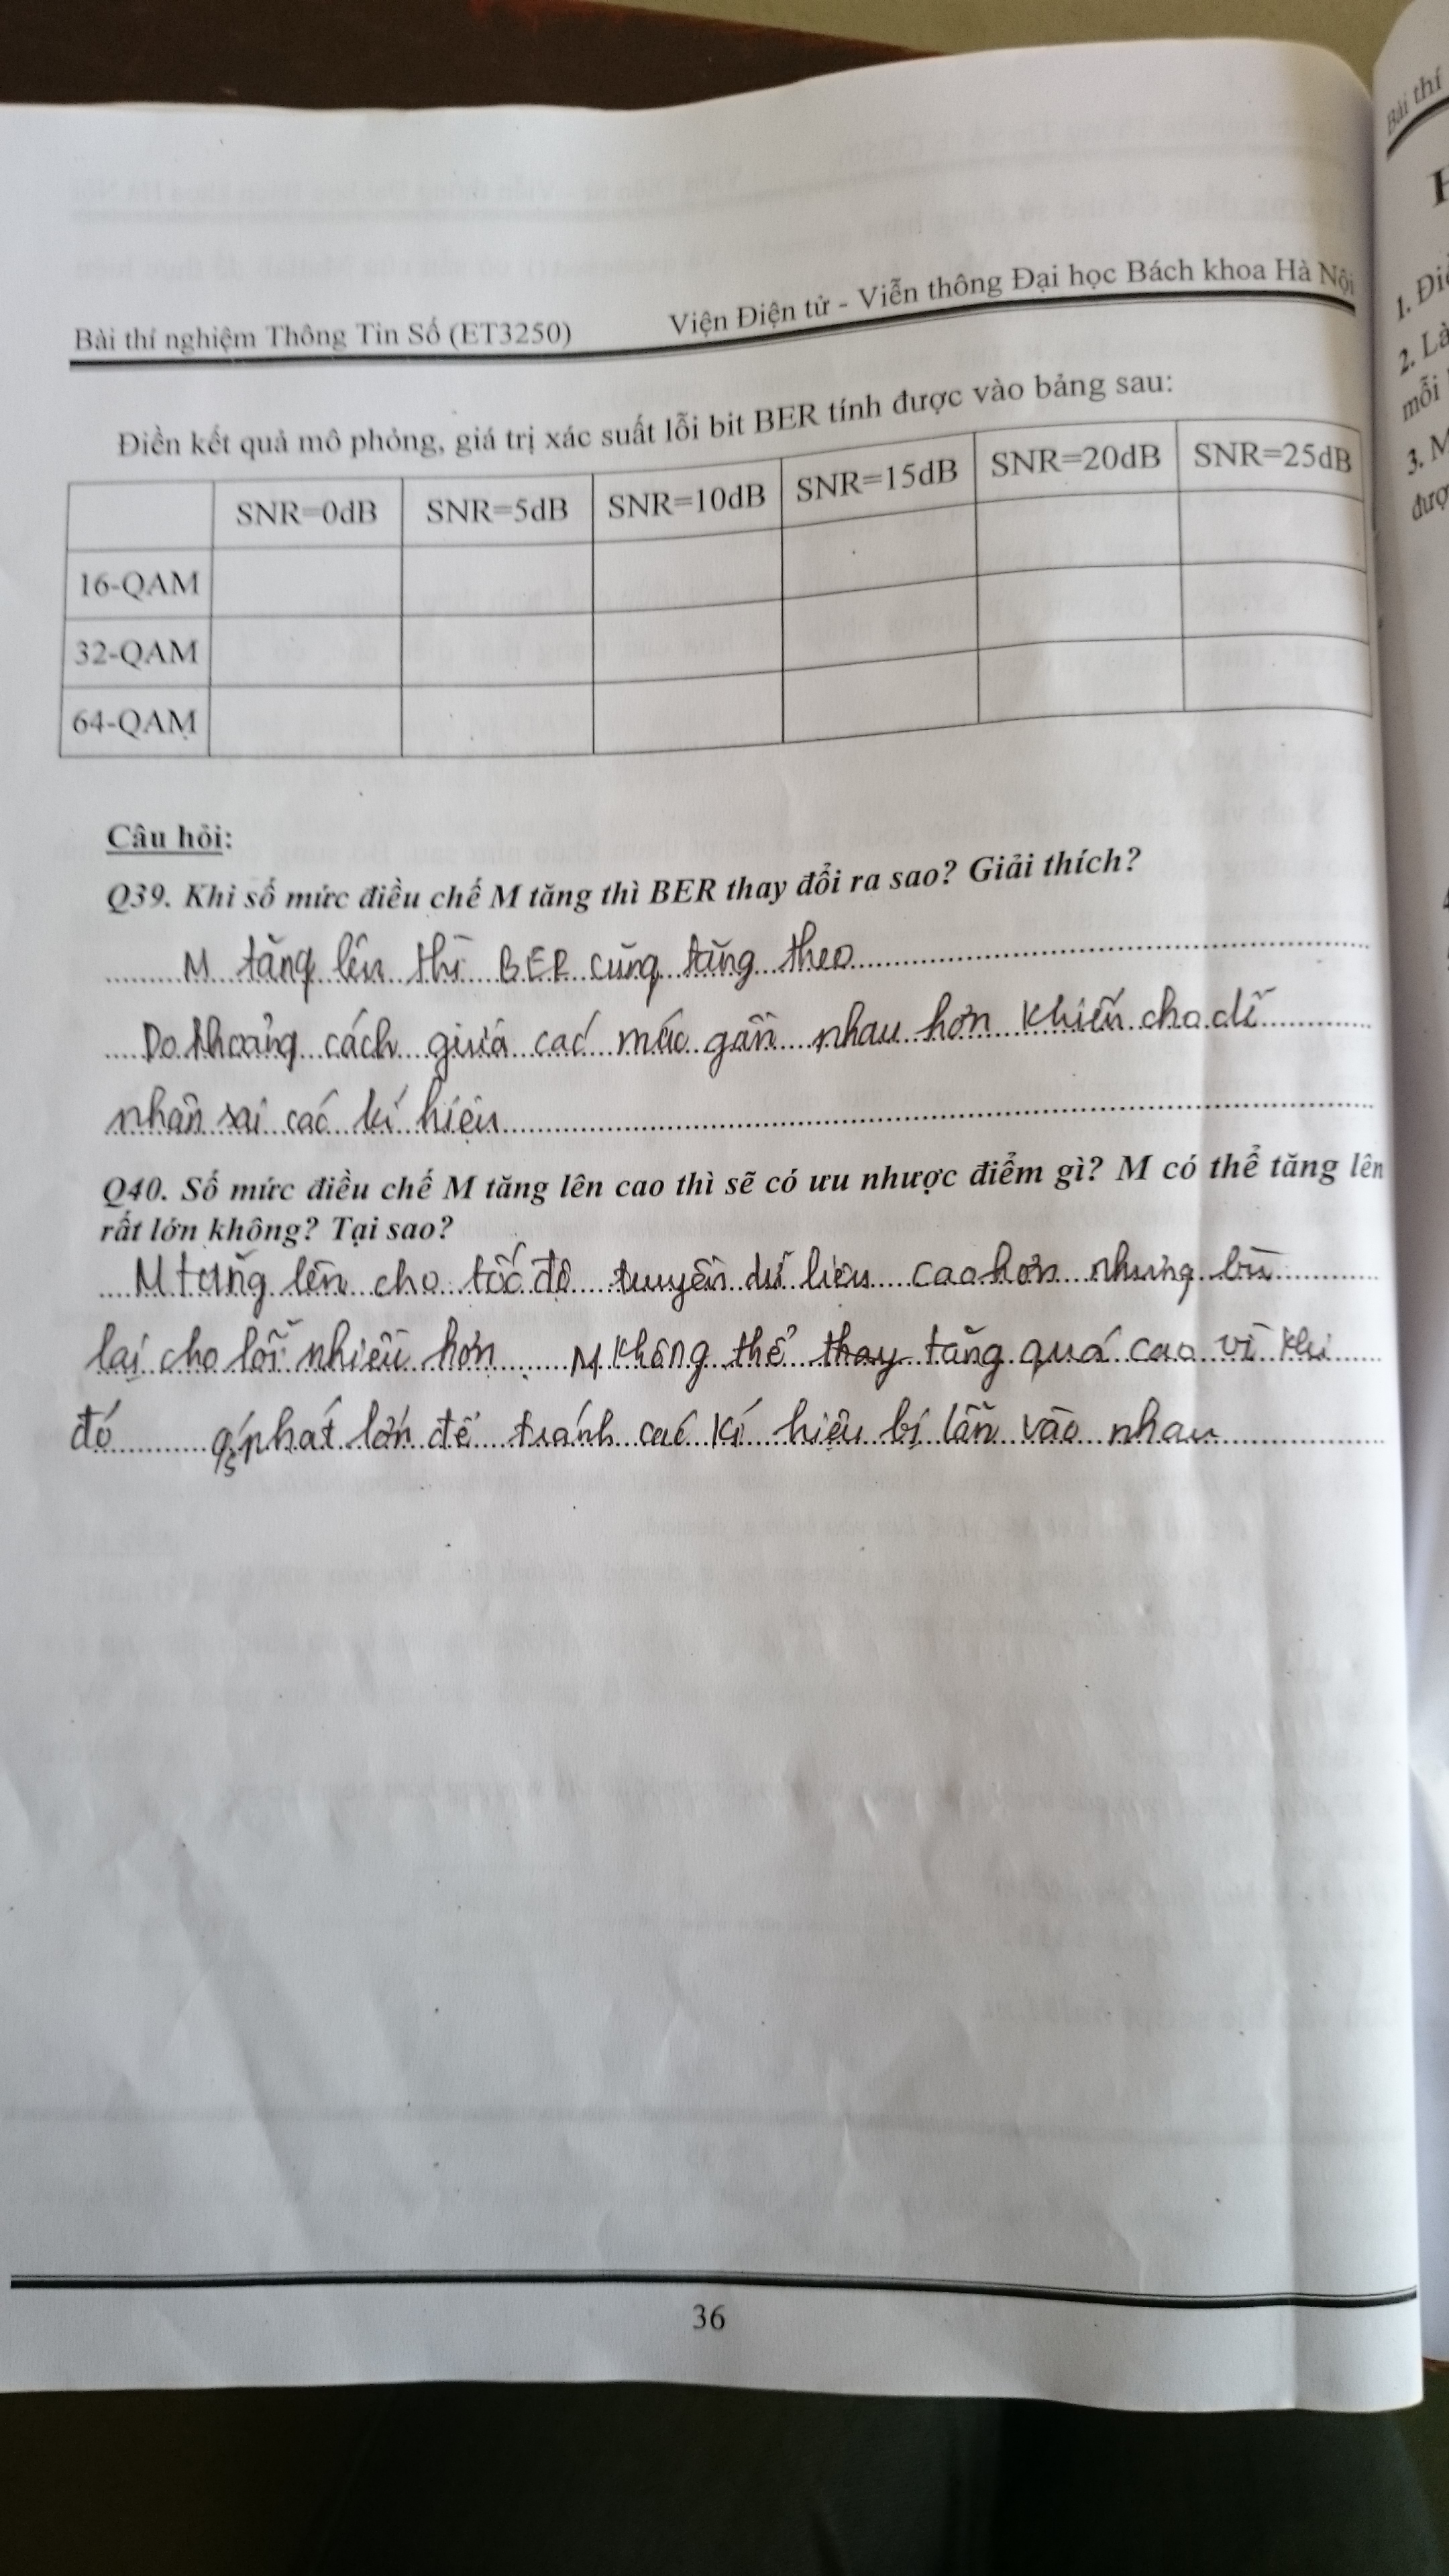 Bài thí nghiệm Thông Tin Số (ET3250) Viện Điện tử - Viễn thông Đại học Bách khoa Hà Nội
Điền kết quả mô phỏng, giá trị xác suất lỗi bit BER tính được vào bảng sau:
SNR=0dB SNR=5dB SNR=10dB SNR=15dB SNR=20dB SNR=25dB
16-QAM
32-QAM
64-QAM
Câu hỏi:
Q39. Khi số mức điều chế M tăng thì BER thay đổi ra sao? Giải thích?
M tăng lên thì BER cũng tăng theo
Do khoảng cách giữa các mức gần nhau hơn khiến cho dễ
nhận sai các kí hiệu
Q40. Số mức điều chế M tăng lên cao thì sẽ có ưu nhược điểm gì? M có thể tăng lên
rất lớn không? Tại sao?
M tăng lên cho tốc độ truyền dữ liệu cao hơn nhưng bù
lại cho lỗi nhiều hơn M không thể thay tăng quá cao vì khi
đó phát lớn để tránh các kí hiệu bị lẫn vào nhau
36
Bài thí
1. Điề
2. Là
mỗi
3. M
đượ